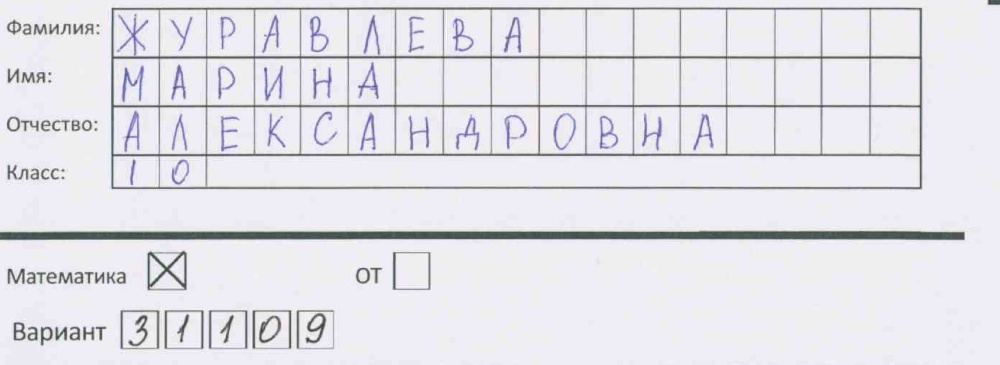 Фамилия: ЖУРАВЛЕВА
Имя: МАРИНА
Отчество: АЛЕКСАНДРОВНА
Класс: 10
Математика ☒ ОТ ☐
Вариант 31109